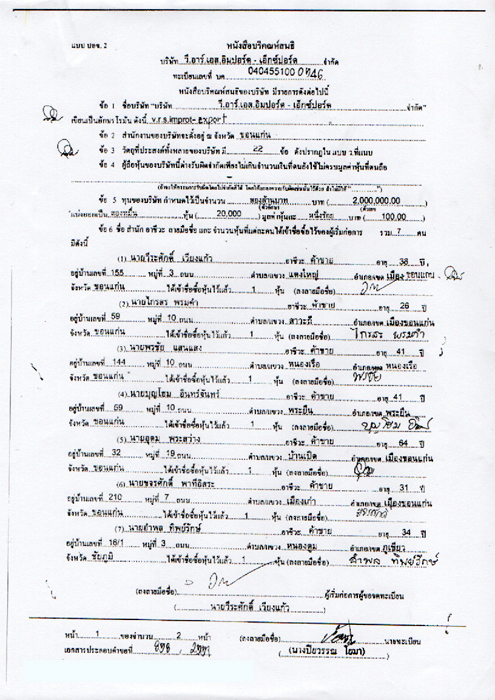 แบบ บอจ. 2
หนังสือบริคณห์สนธิ
บริษัท วี.อาร์.เอส.อิมปอร์ต - เอ็กซ์ปอร์ต จำกัด
ทะเบียนเลขที่ บค. 040455100
หนังสือบริคณห์สนธิของบริษัท มีรายการดังต่อไปนี้
ข้อ 1 ชื่อบริษัท "บริษัท วี.อาร์.เอส.อิมปอร์ต - เอ็กซ์ปอร์ต จำกัด"
เขียนเป็นอักษรโรมัน ดังนี้ v.r.s.improt-export
ข้อ 2 สำนักงานของบริษัทจะตั้งอยู่ ณ จังหวัด ขอนแก่น
ข้อ 3 วัตถุที่ประสงค์ทั้งหลายของบริษัท มี 22 ข้อ ดังปรากฏใน แบบ ว.ที่แนบ
ข้อ 4 ผู้ถือหุ้นของบริษัทนี้ต่างรับผิดจำกัดเพียงไม่เกินจำนวนเงินที่ตนยังใช้ไม่ครบมูลค่าหุ้นที่ตนถือ
ข้อ 5 ทุนของบริษัท กำหนดไว้เป็นจำนวน สองล้านบาท บาท ( 2,000,000.00 )
แบ่งออกเป็น สองหมื่น หุ้น ( 20,000 ) มูลค่าหุ้นละ หนึ่งร้อย บาท ( 100.00 )
ข้อ 6 ชื่อ สำนัก อาชีวะ ลายมือชื่อ และ จำนวนหุ้นที่แต่ละคนได้เข้าชื่อซื้อไว้ของผู้เริ่มก่อการ รวม 7 คน
มีดังนี้
(1) นายวีระศักดิ์ เวียงแก้ว อาชีวะ ค้าขาย อายุ 38 ปี
อยู่บ้านเลขที่ 155 หมู่ที่ 3 ถนน ตำบล/แขวง แดงใหญ่ อำเภอ/เขต เมืองขอนแก่น
จังหวัด ขอนแก่น ได้เข้าชื่อซื้อหุ้นไว้แล้ว 1 หุ้น (ลงลายมือชื่อ)
(2) นายไกรสร พรมคำ อาชีวะ ค้าขาย อายุ 26 ปี
อยู่บ้านเลขที่ 59 หมู่ที่ 10 ถนน ตำบล/แขวง สาวะถี อำเภอ/เขต เมืองขอนแก่น
จังหวัด ขอนแก่น ได้เข้าชื่อซื้อหุ้นไว้แล้ว 1 หุ้น (ลงลายมือชื่อ) ไกรสร พรมคำ
(3) นายพรชัย แสนแสง อาชีวะ ค้าขาย อายุ 41 ปี
อยู่บ้านเลขที่ 144 หมู่ที่ 10 ถนน ตำบล/แขวง หนองเรือ อำเภอ/เขต หนองเรือ
จังหวัด ขอนแก่น ได้เข้าชื่อซื้อหุ้นไว้แล้ว 1 หุ้น (ลงลายมือชื่อ) พรชัย
(4) นายบุญโฮม อินทร์จันทร์ อาชีวะ ค้าขาย อายุ 41 ปี
อยู่บ้านเลขที่ 69 หมู่ที่ 10 ถนน ตำบล/แขวง พระยืน อำเภอ/เขต พระยืน
จังหวัด ขอนแก่น ได้เข้าชื่อซื้อหุ้นไว้แล้ว 1 หุ้น (ลงลายมือชื่อ) บุญโฮม
(5) นายอุดม พระสว่าง อาชีวะ ค้าขาย อายุ 64 ปี
อยู่บ้านเลขที่ 32 หมู่ที่ 19 ถนน ตำบล/แขวง บ้านเป็ด อำเภอ/เขต เมืองขอนแก่น
จังหวัด ขอนแก่น ได้เข้าชื่อซื้อหุ้นไว้แล้ว 1 หุ้น (ลงลายมือชื่อ)
(6) นายขจรศักดิ์ พาที่อิสระ อาชีวะ ค้าขาย อายุ 31 ปี
อยู่บ้านเลขที่ 210 หมู่ที่ 7 ถนน ตำบล/แขวง เมืองเก่า อำเภอ/เขต เมืองขอนแก่น
จังหวัด ขอนแก่น ได้เข้าชื่อซื้อหุ้นไว้แล้ว 1 หุ้น (ลงลายมือชื่อ)
(7) นายอำพล ทิพย์รักษ์ อาชีวะ ค้าขาย อายุ 34 ปี
อยู่บ้านเลขที่ 16/1 หมู่ที่ 3 ถนน ตำบล/แขวง หนองตูม อำเภอ/เขต ภูเขียว
จังหวัด ชัยภูมิ ได้เข้าชื่อซื้อหุ้นไว้แล้ว 1 หุ้น (ลงลายมือชื่อ) อำพล ทิพย์รักษ์
(ลงลายมือชื่อ) ผู้เริ่มก่อการผู้ขอจดทะเบียน
( นายวีระศักดิ์ เวียงแก้ว )
หน้า 1 ของจำนวน 2 หน้า (ลงลายมือชื่อ) นายทะเบียน
เอกสารประกอบคำขอที่ (นางปิยวรรณ โยมา)